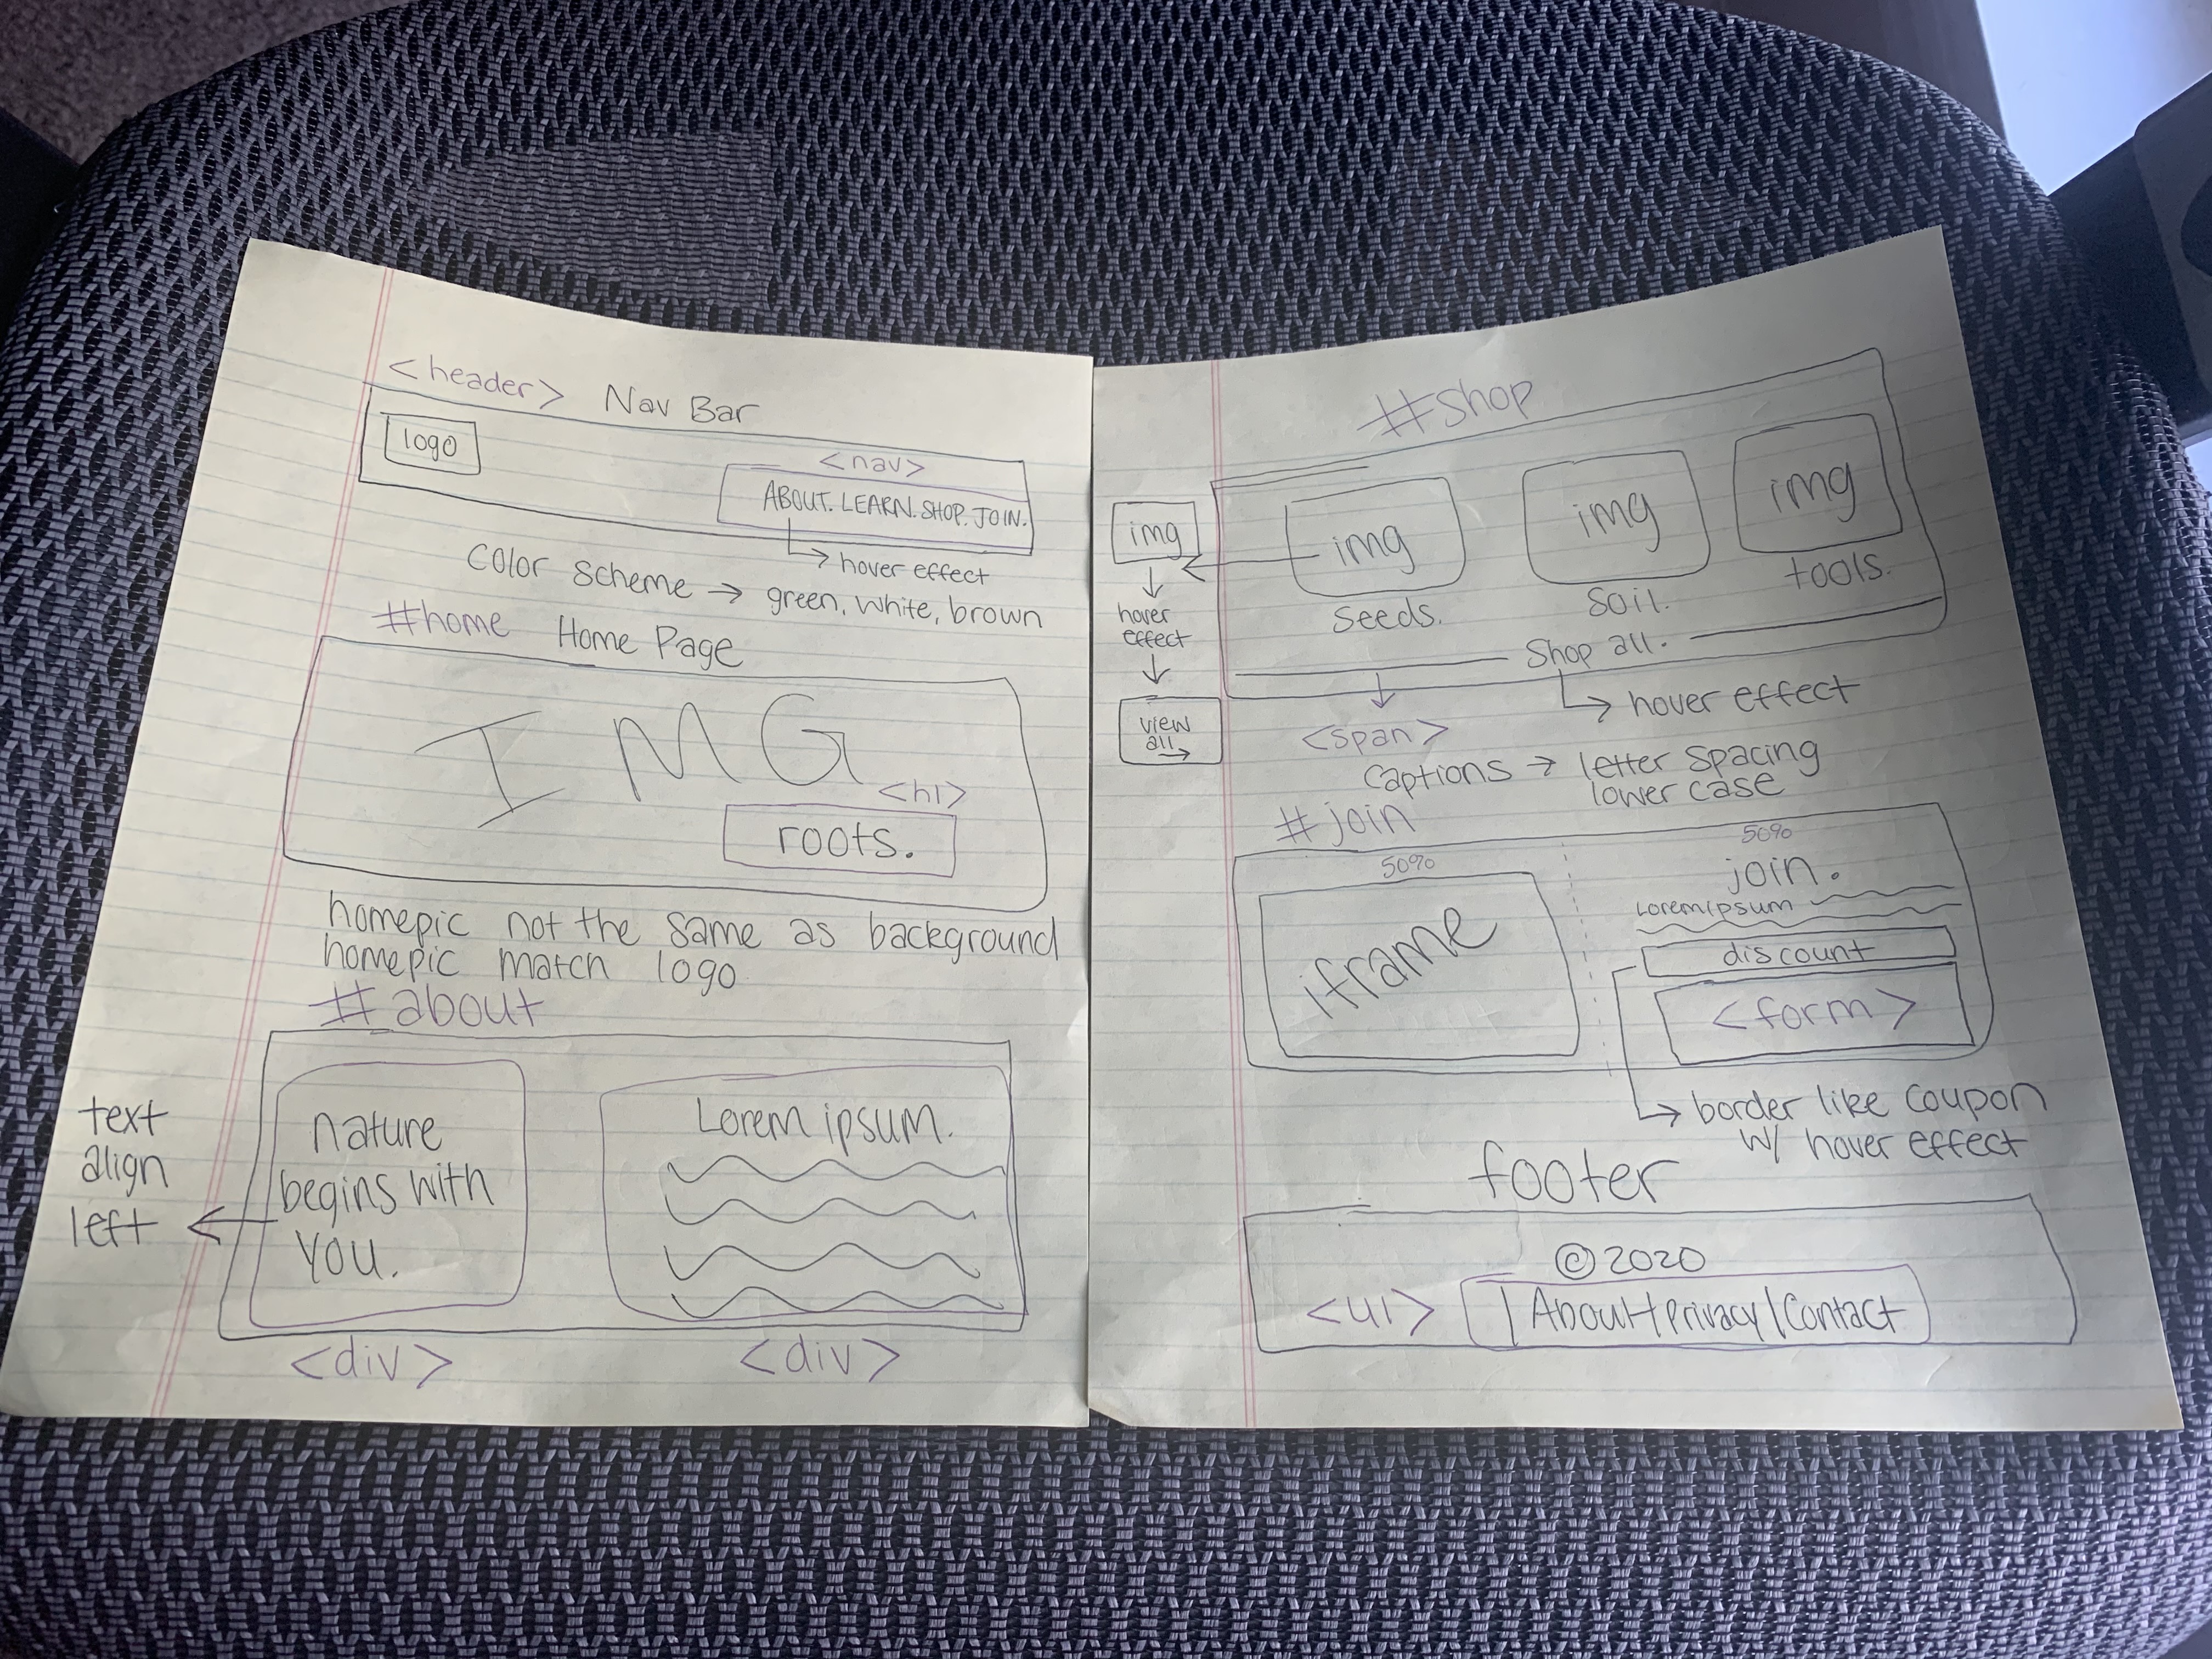 <header> Nav Bar
<nav>
logo
ABOUT. LEARN. SHOP. JOIN.
hover effect
Color Scheme → green, white, brown
#home Home Page
IMG
<h1>
roots.
homepic not the same as background
homepic match logo
#about
text
align
left
nature
begins with
you.
Lorem ipsum.
<div>
<div>
#shop
img
img
img
img
hover
effect
view
all →
seeds.
soil.
tools.
shop all.
<span>
hover effect
Captions → letter spacing
lower case
#join
50%
50%
iframe
join.
Lorem ipsum
discount
<form>
border like coupon
w/ hover effect
footer
©2020
<ul>
| About | Privacy | Contact